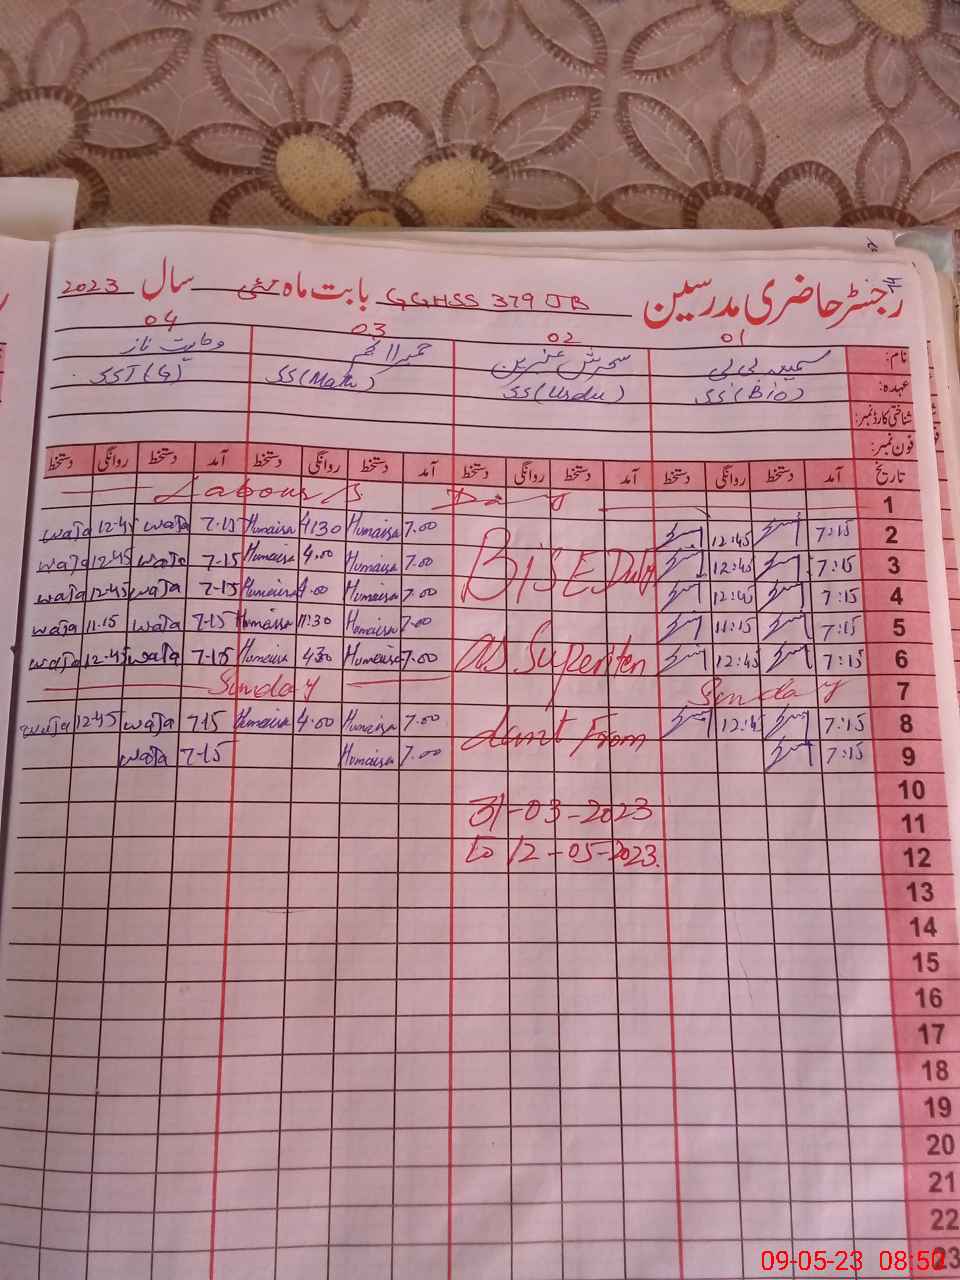 رجسٹر حاضری مدرسین GGHSS 379 JB بابت ماہ مئی سال 2023
01 02 03 04
نام: سمیعہ بی بی سحرش عنبرین حمیرا انجم ناز
عہدہ: SS (Bio) SS (Urdu) SS (Math) SST (G)
شناختی کارڈ نمبر:
فون نمبر:
تاریخ آمد دستخط روانگی دستخط آمد دستخط روانگی دستخط آمد دستخط روانگی دستخط آمد دستخط روانگی دستخط
1 Labour's Day
2 7:15 12:45 7.00 Humaisa 4:30 Humaisa 7-15 waja 12-45 waja
3 7:15 12:45 7.00 Humaisa 4.00 Humaisa 7-15 waja 12-45 waja
4 7:15 12:45 7.00 Humaisa 4.00 Humaisa 7-15 waja 12-45 waja
5 7:15 11:15 7.00 Humaisa 11:30 Humaisa 7-15 waja 11.15 waja
6 7:15 12:45 7.00 Humaisa 4:30 Humaisa 7-15 waja 12-45 waja
7 Sunday Sunday
8 7:15 12:45 7.00 Humaisa 4.00 Humaisa 7-15 waja 12-45 waja
9 7:15 7.00 Humaisa 7-15 waja
BISE Duty
as Superiten
dant From
31-03-2023
to 12-05-2023.
10
11
12
13
14
15
16
17
18
19
20
21
22
23
09-05-23 08:50